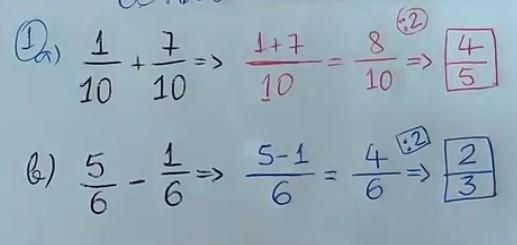 ① a) 1/10 + 7/10 => (1+7)/10 = 8/10 (:2) => 4/5
b) 5/6 - 1/6 => (5-1)/6 = 4/6 (:2) => 2/3